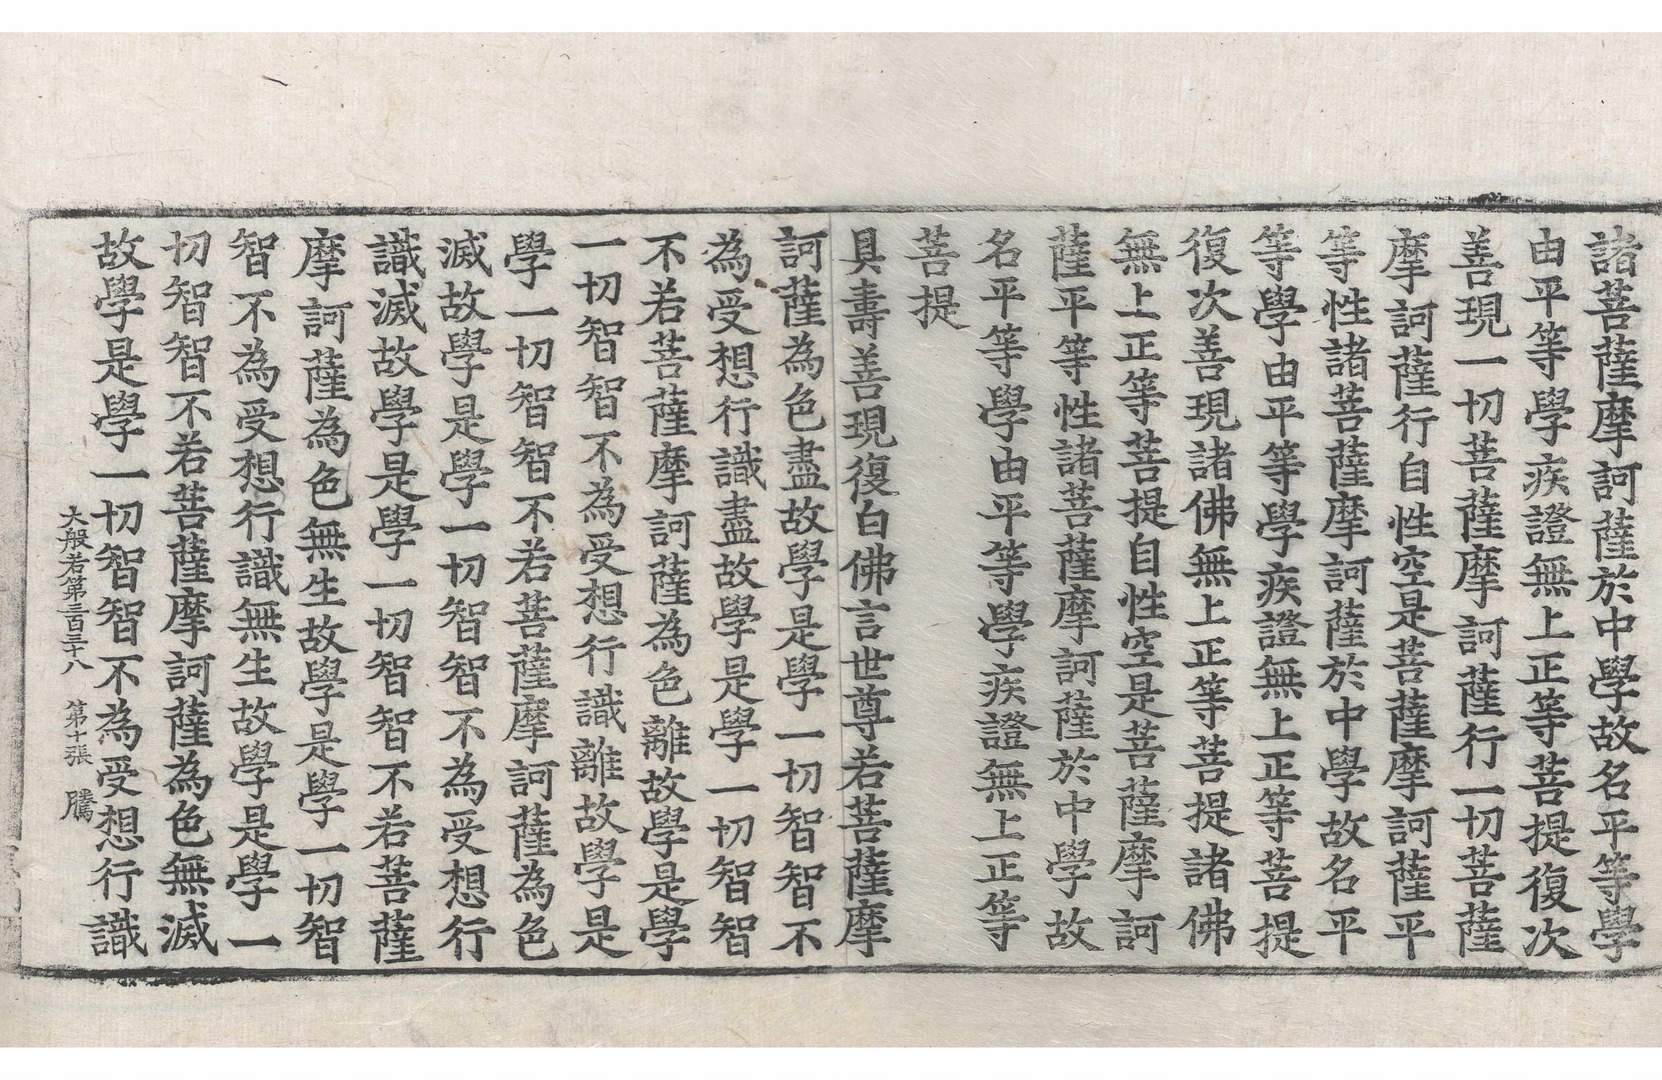 諸菩薩摩訶薩於中學故名平等學
由平等學疾證無上正等菩提復次
善現一切菩薩摩訶薩行一切菩薩
摩訶薩行自性空是菩薩摩訶薩平
等性諸菩薩摩訶薩於中學故名平
等學由平等學疾證無上正等菩提
復次善現諸佛無上正等菩提諸佛
無上正等菩提自性空是菩薩摩訶
薩平等性諸菩薩摩訶薩於中學故
名平等學由平等學疾證無上正等
菩提
具壽善現復白佛言世尊若菩薩摩
訶薩為色盡故學是學一切智智不
為受想行識盡故學是學一切智智
不若菩薩摩訶薩為色離故學是學
一切智智不為受想行識離故學是
學一切智智不若菩薩摩訶薩為色
滅故學是學一切智智不為受想行
識滅故學是學一切智智不若菩薩
摩訶薩為色無生故學是學一切智
智不為受想行識無生故學是學一
切智智不若菩薩摩訶薩為色無滅
故學是學一切智智不為受想行識
大般若第三百三十八 第十張 騰